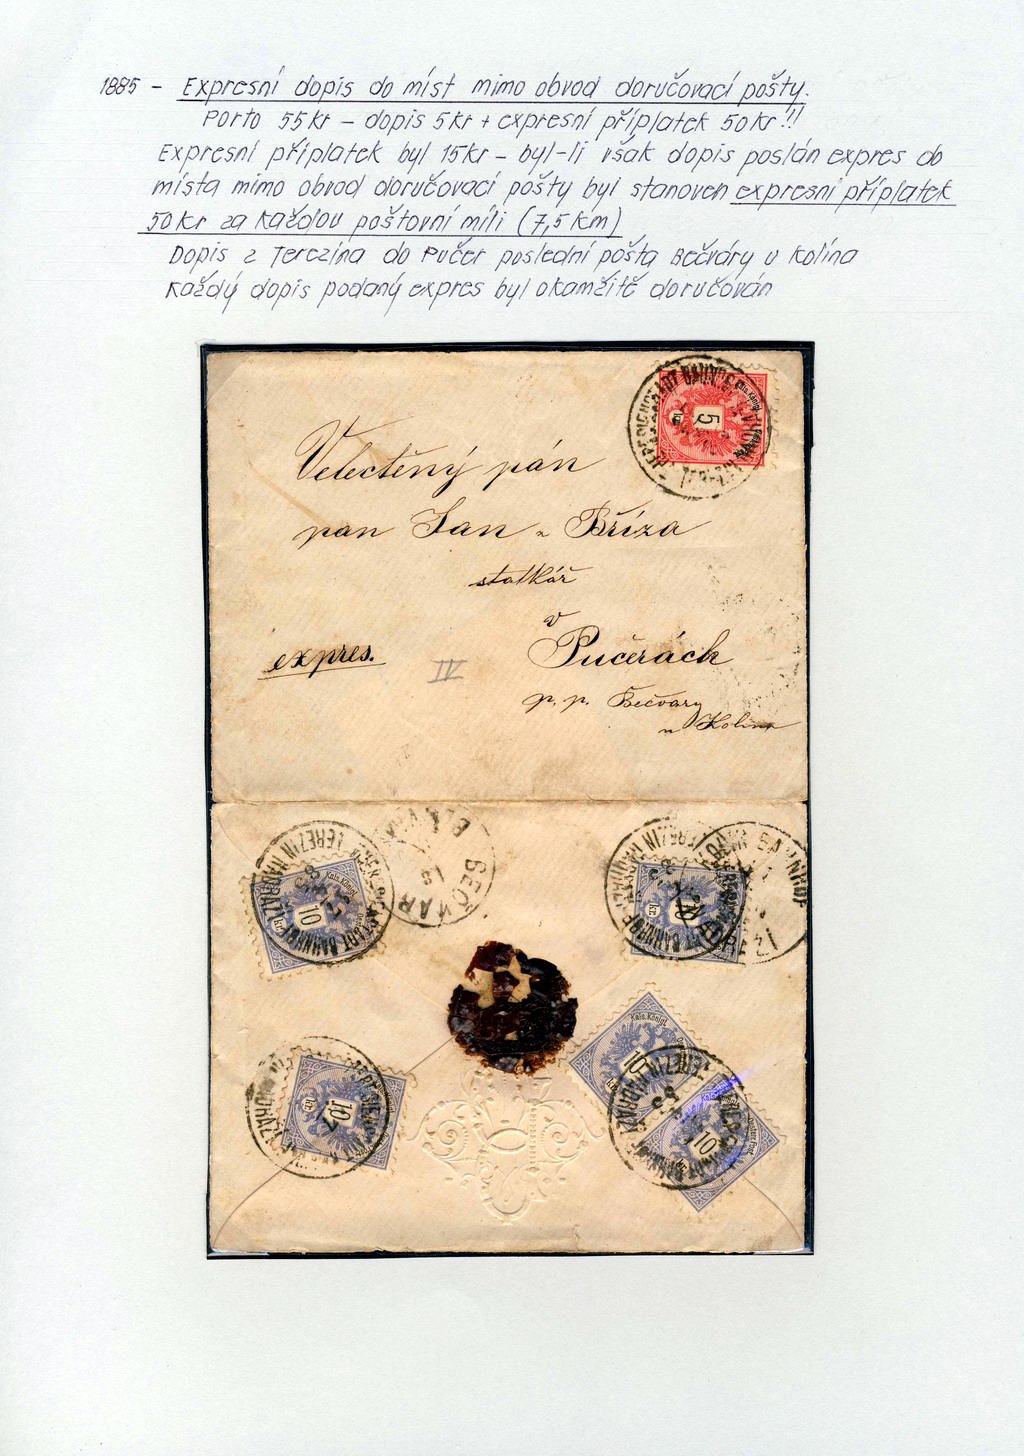 1885 - Expresní dopis do míst mimo obvod doručovací pošty.
Porto 55kr - dopis 5kr + expresní příplatek 50kr!!
Expresní příplatek byl 15kr - byl-li však dopis poslán expres do
místa mimo obvod doručovací pošty byl stanoven expresní příplatek
50kr za každou poštovní míli (7,5km)
Dopis z Terezína do Pučer poslední pošta Bečváry u Kolína
Každý dopis podaný expres byl okamžitě doručován
5
kr
Velectěný pán
pan Jan Bříza
statkář
v
expres.
IV
Pučerách
p. p. Bečváry
u Kolína
TEREZIN NADRAZI
BAHNHOF
BEČVAR
18
8
Kais. Königl.
10
kr
TEREZIN NADRAZI
BAHNHOF
BAHNHOF
10
kr
10
kr
Kais. Königl.
10
TEREZIN NADRAZI
BAHNHOF
10